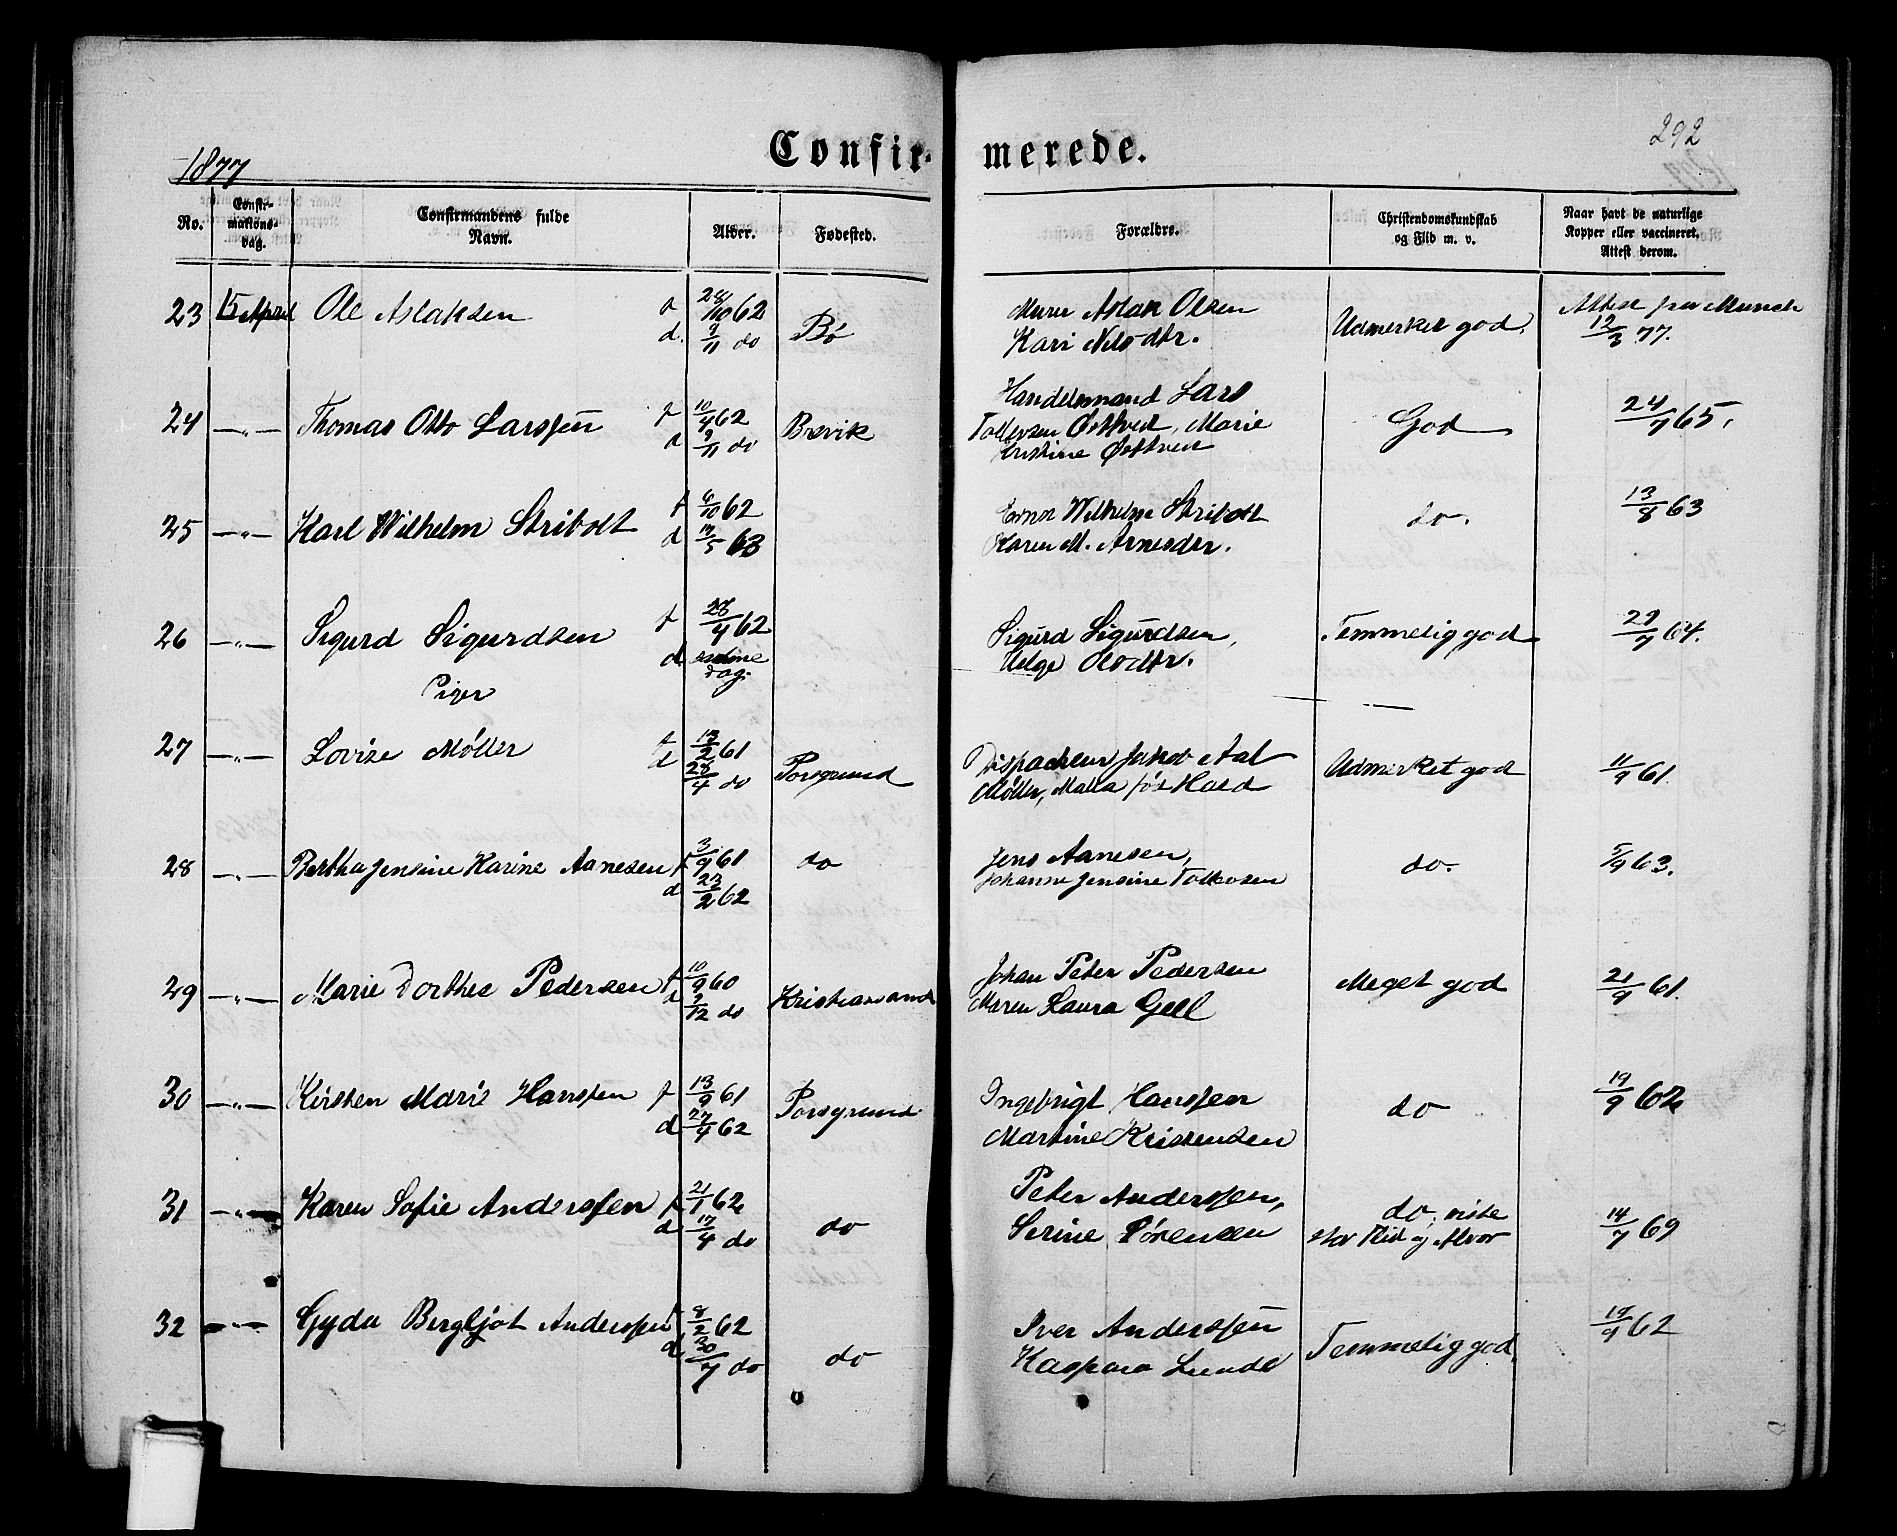 Confir- merede.
292
1877
No.
Confir-
mations-
dag.
Confirmandens fulde
Navn.
Alder.
Fødested.
Forældre.
Christendomskundskab
og Flid m. v.
Naar havt de naturlige
Kopper eller vaccineret,
Attest derom.
23 15 April Ole Aslaksen f 28/10 62 d. 9/11 do Bø
Murer Aslak Olsen
Kari Nilsdtr.
Udmerket god.
Attest fra Munch
12/3 77.
24 —"— Thomas Otto Larssen f 10/4 62 d 9/11 do Brevik
Handelsmand Lars
Tollefsen Østtvedt, Marie
Kristine Østtvedt
God
24/7 65.
25 —"— Karl Wilhelm Stribolt f 6/10 62 d 17/5 63
Wilhelm Stribolt
Karen M. Arnesdtr.
do.
13/8 63
26 —"— Sigurd Sigurdsen f 28/4 62 d samme
dag.
Sigurd Sigurdsen,
Helge Olsdtr.
Temmelig god
29/7 64.
Piger
27 —"— Lovise Møller f 13/2 61 d 28/4 do Porsgrund
Dispacheur Jakob Aal
Møller, Malla fød Hald
Udmerket god
11/9 61.
28 —"— Bertha Jensine Karine Aanesen f 3/9 61 d 23/2 62 do
Jens Aanesen,
Johanne Jensine Tollevsen
do.
5/9 63.
29 —"— Marie Dorthee Pedersen f 10/9 60 d 9/12 do Kristiansand
Johan Peter Pedersen
Maren Laura Gell
Meget god
21/9 61.
30 —"— Kirsten Marie Hanssen f 13/9 61 d 27/4 62 Porsgrund
Ingebrigt Hanssen
Martine Kristensen
do
19/9 62
31 —"— Karen Sofie Anderssen f 21/1 62 d 17/4 do do
Peter Anderssen,
Serine Sørensen
do, viste
stor Flid og Alvor
14/7 69
32 —"— Gyda Bergljot Anderssen f 8/2 62 d 30/7 do do
Iver Anderssen
Kaspara Lunde
Temmelig god.
19/9 62